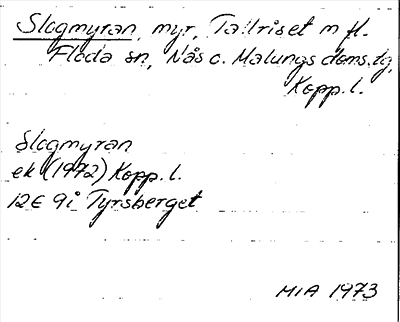 Slogmyran, myr, Tallriset m fl.
Floda sn, Nås o. Malungs doms.tg,
Kopp. l.
Slogmyran
ek (1972) Kopp. l.
12E 9i Tyrsberget
MIA 1973